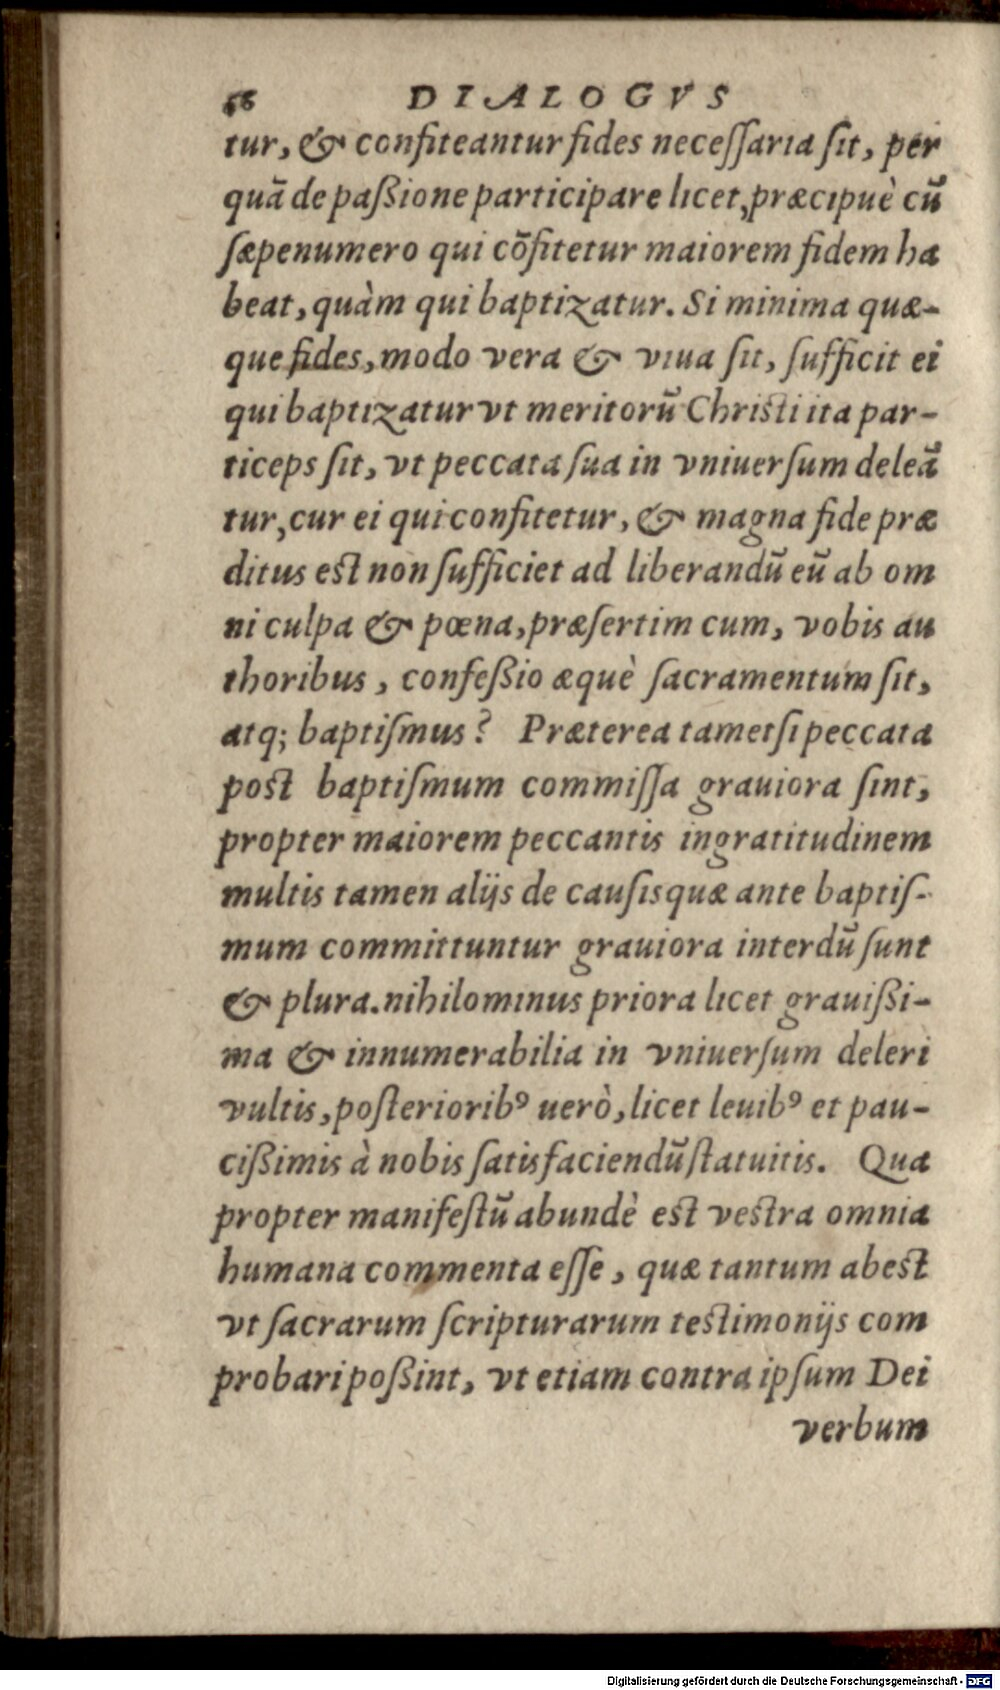 56 DIALOGVS
tur, & confiteantur fides neceſſaria ſit, per
quā de paßione participare licet, præcipuè cū
ſæpenumero qui cōfitetur maiorem fidem ha
beat, quàm qui baptizatur. Si minima quæ-
que fides, modo vera & viua ſit, ſufficit ei
qui baptizatur vt meritorū Christi ita par-
ticeps ſit, vt peccata ſua in vniuerſum deleā
tur, cur ei qui confitetur, & magna fide præ
ditus est non ſufficiet ad liberandū eū ab om
ni culpa & pœna, præſertim cum, vobis au
thoribus, confeßio æquè ſacramentum ſit,
atq; baptiſmus? Præterea tametſi peccata
post baptiſmum commiſſa grauiora ſint,
propter maiorem peccantis ingratitudinem
multis tamen alijs de cauſis quæ ante baptiſ-
mum committuntur grauiora interdū ſunt
& plura. nihilominus priora licet grauißi-
ma & innumerabilia in vniuerſum deleri
vultis, poſterioribꝰ uerò, licet leuibꝰ et pau-
cißimis à nobis ſatisfaciendū ſtatuitis. Qua
propter manifeſtū abundè est vestra omnia
humana commenta eſſe, quæ tantum abest
vt ſacrarum ſcripturarum testimonijs com
probari poßint, vt etiam contra ipſum Dei
verbum
Digitalisierung gefördert durch die Deutsche Forschungsgemeinschaft - DFG